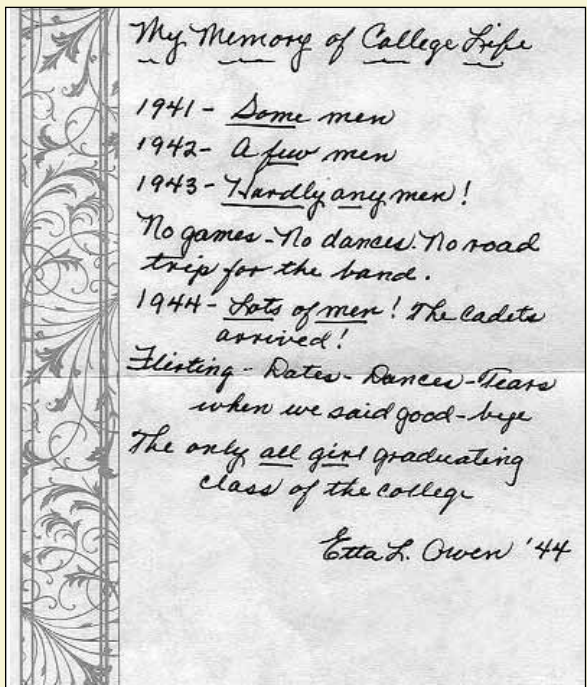 My Memory of College Life
1941- Some men
1942- A few men
1943- Hardly any men!
No games - No dances. No road
trip for the band.
1944- Lots of men! The cadets
arrived!
Flirting - Dates - Dances - Tears
when we said good-bye
The only all girl graduating
class of the college
Etta L. Owen '44